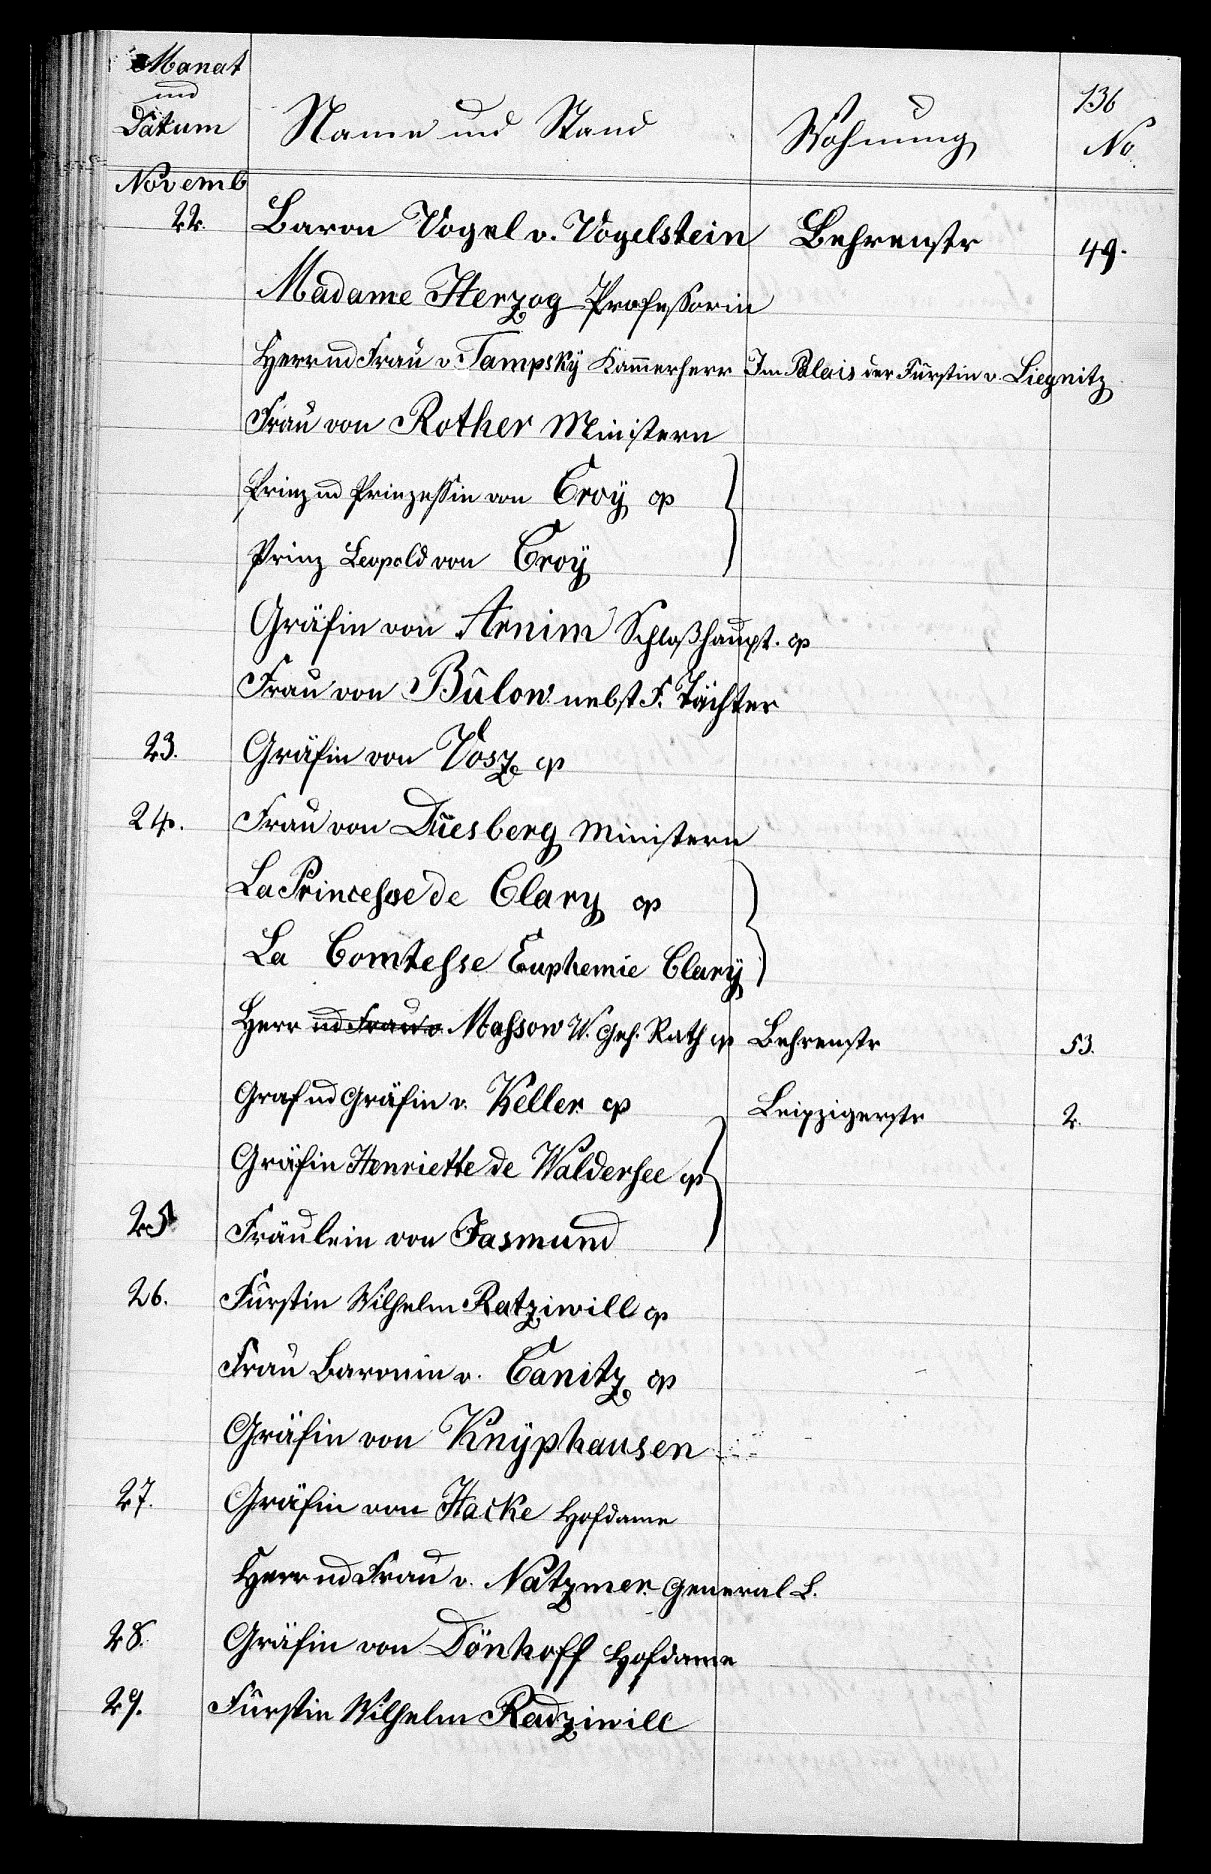 Monat
und
Datum
Name und Stand
Wohnung
136
No
Novemb
22. Baron Vogel v. Vogelstein Behrenstr 49.
Madame Herzog Professorin
Herr und Frau v. Tampsky Kammerherr Im Palais der Fürstin v. Liegnitz
Frau von Rother Ministern
Prinz und Prinzessin von Croÿ cp
Prinz Leopold von Croÿ
Gräfin von Arnim Schloßhaupt. cp
Frau von Bülow nebst F. Töchter
23. Gräfin von Vosz cp
24. Frau von Düesberg Ministern
La Princesse de Clary cp
La Comtesse Euphemie Clarÿ
Herr und Frau v. Massow W. Geh. Rath cp Behrenstr 53.
Graf und Gräfin v. Keller cp Leipzigerstr 2.
Gräfin Henriette de Waldersee cp
25 Fräulein von Jasmund
26. Fürstin Wilhelm Ratziwill cp
Frau Baronin v. Canitz cp
Gräfin von Knÿphausen
27. Gräfin von Hacke Hofdame
Herr und Frau v. Natzmer General L.
28. Gräfin von Dönhoff Hofdame
29. Fürstin Wilhelm Radziwill